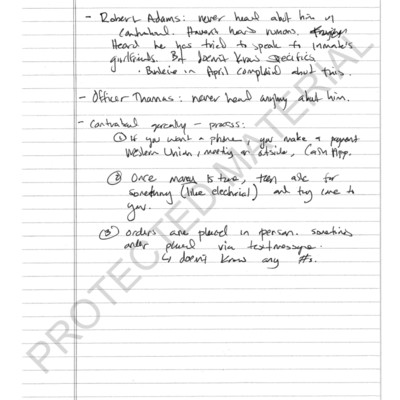 - Robert Adams: never heard abt him w/
contraband. Haven't heard rumors.
Heard he has tried to speak to inmate's
girlfriends. But doesn't know specifics
in April complained about this.
- Officer Thomas: never heard anything about him.
- Contraband generally - process:
① If you want a phone, you make a payment
Western Union, meeting on outside, Cash App.
② Once money is there, then ask for
something (like electrical) and they come to
you.
③ orders are placed in person. sometimes
order placed via text message.
↳ doesn't know any #s.
PROTECTED MATERIAL